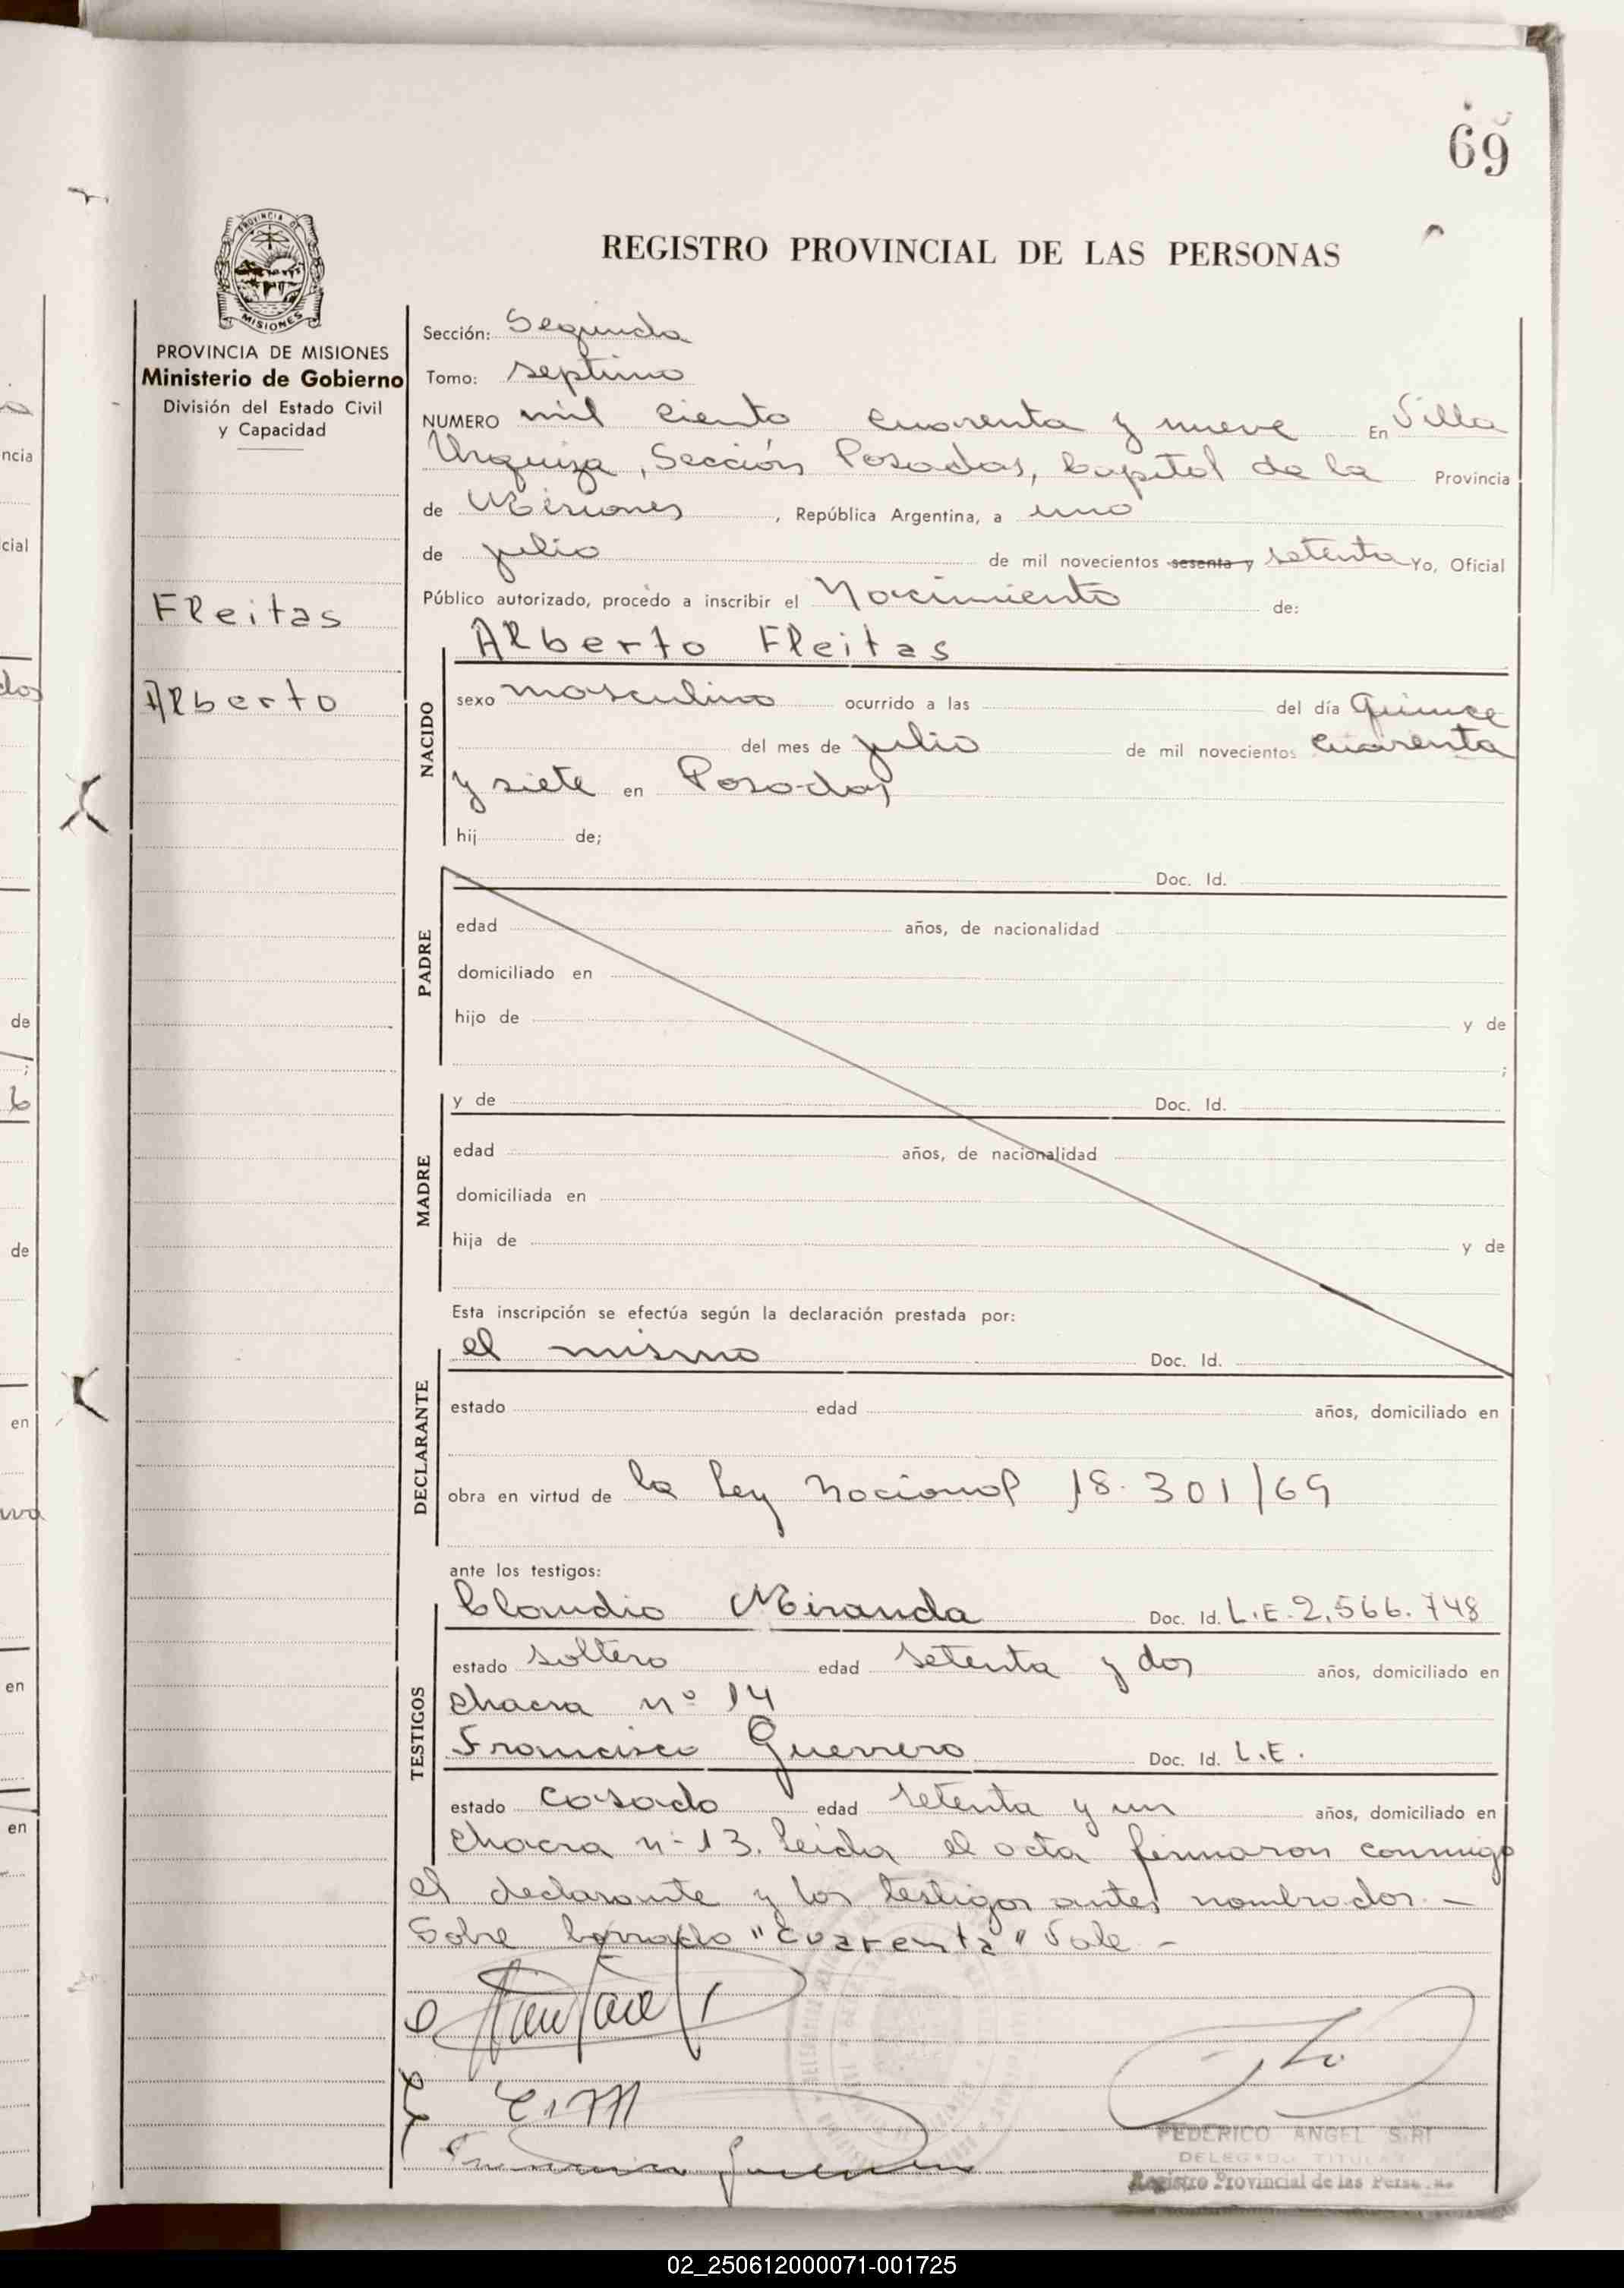 69
REGISTRO PROVINCIAL DE LAS PERSONAS
PROVINCIA DE MISIONES
PROVINCIA DE MISIONES
Ministerio de Gobierno
División del Estado Civil
y Capacidad
Fleitas
Alberto
Sección: Segunda
Tomo: septimo
NUMERO mil ciento cuarenta y nueve En Villa
Urquiza, Sección Posadas, Capital de la Provincia
de Misiones, República Argentina, a uno
de julio de mil novecientos sesenta y setenta Yo, Oficial
Público autorizado, procedo a inscribir el Nacimiento de:
Alberto Fleitas
NACIDO
sexo masculino ocurrido a las del día quince
del mes de julio de mil novecientos cuarenta
y siete en Posadas
hij de;
PADRE
Doc. Id.
edad años, de nacionalidad
domiciliado en
hijo de y de
;
MADRE
y de Doc. Id.
edad años, de nacionalidad
domiciliada en
hija de y de
Esta inscripción se efectúa según la declaración prestada por:
DECLARANTE
el mismo Doc. Id.
estado edad años, domiciliado en
obra en virtud de la Ley Nacional 18.301/69
ante los testigos:
TESTIGOS
Claudio Miranda Doc. Id. L.E. 2.566.748
estado soltero edad setenta y dos años, domiciliado en
chacra nº 14
Francisco Guerrero Doc. Id. L.E.
estado casado edad setenta y un años, domiciliado en
chacra nº 13. Leida el acta firmaron conmigo
el declarante y los testigos antes nombrados. —
Sobre borrado "cuarenta" Vale —
C. M
Francisco Guerrero
FEDERICO ANGEL
DELEGADO TITULAR
Registro Provincial de las Personas
02_250612000071-001725